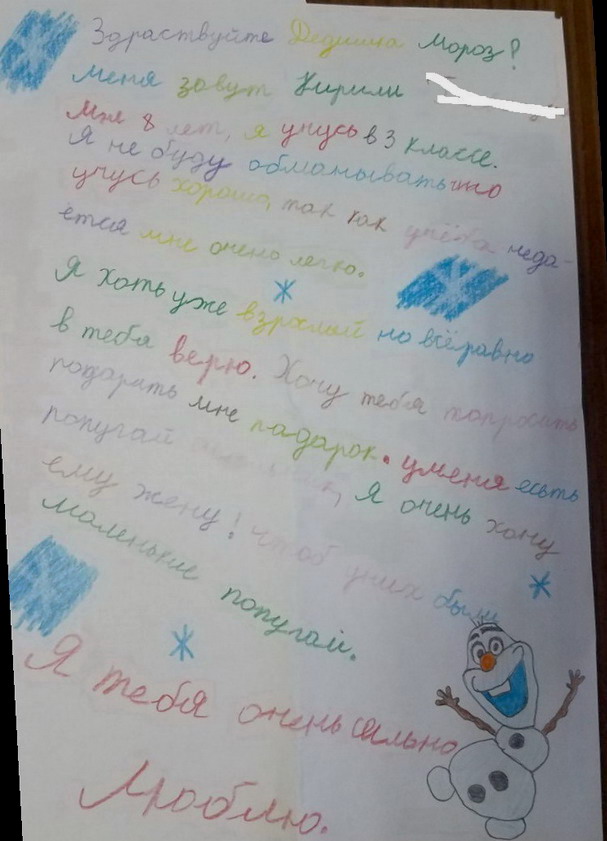 Здраствуйте Дедушка Мороз!
Меня завут Кирилл
Мне 8 лет, я учусь в 3 классе.
Я не буду обманывать что
учусь хорошо, так как учёба неда-
ётся мне очень легко.
Я хоть уже взрослый но всёравно
в тебя верю. Хочу тебя попросить
подарить мне падарок. уменя есть
попугай, я очень хочу
ему жену! Чтоб уних были
маленькие попугаи.
Я тебя очень сильно
Люблю.